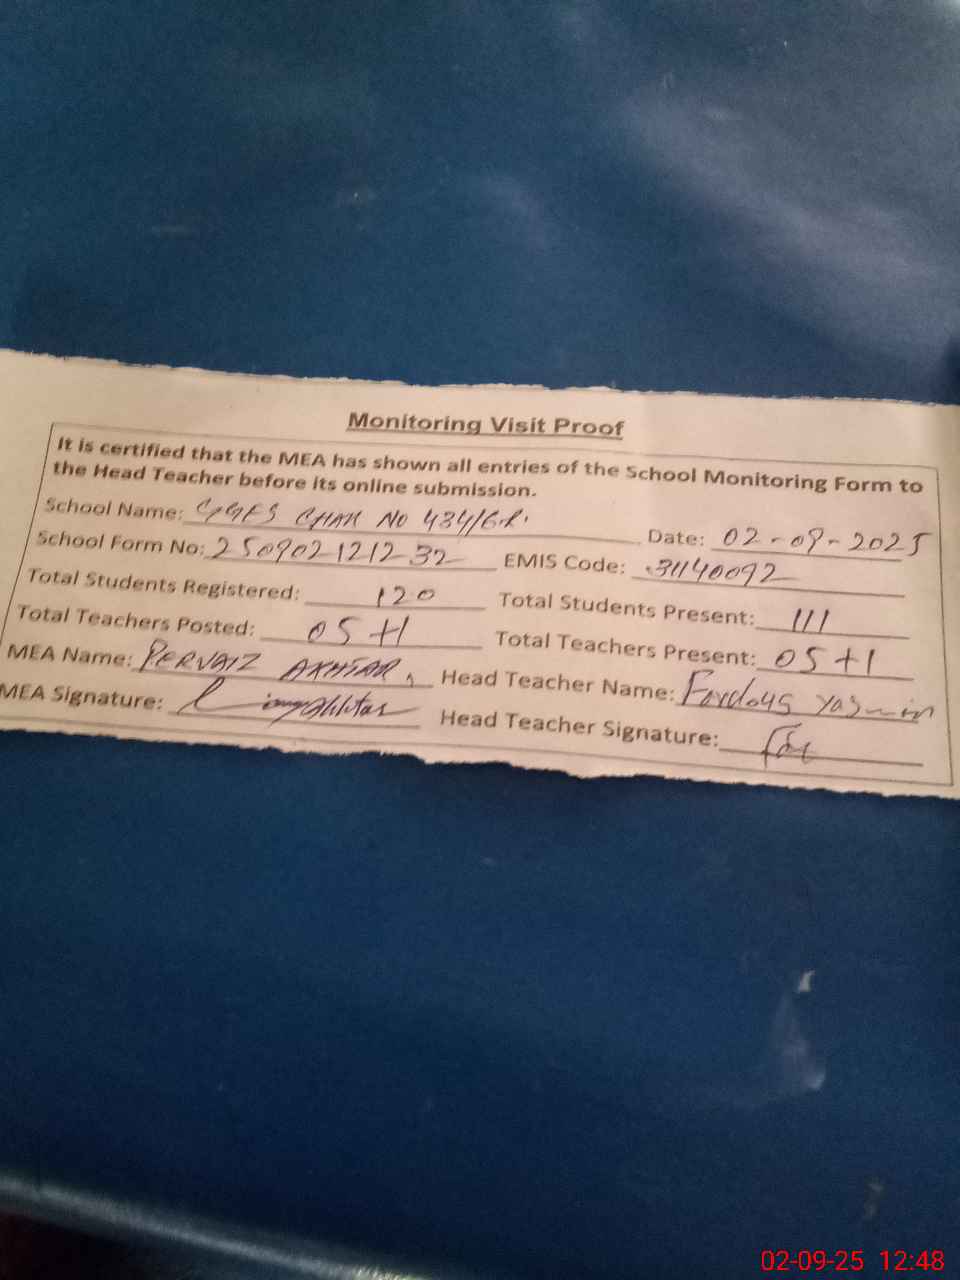 Monitoring Visit Proof
It is certified that the MEA has shown all entries of the School Monitoring Form to
the Head Teacher before its online submission.
School Name: GGES CHAK NO 484/6.R. Date: 02-09-2025
School Form No: 250902121232 EMIS Code: 31140092
Total Students Registered: 120 Total Students Present: 111
Total Teachers Posted: 05+1 Total Teachers Present: 05+1
MEA Name: PERVAIZ AKHTAR Head Teacher Name: Fordous Yasmin
MEA Signature: Head Teacher Signature:
02-09-25 12:48